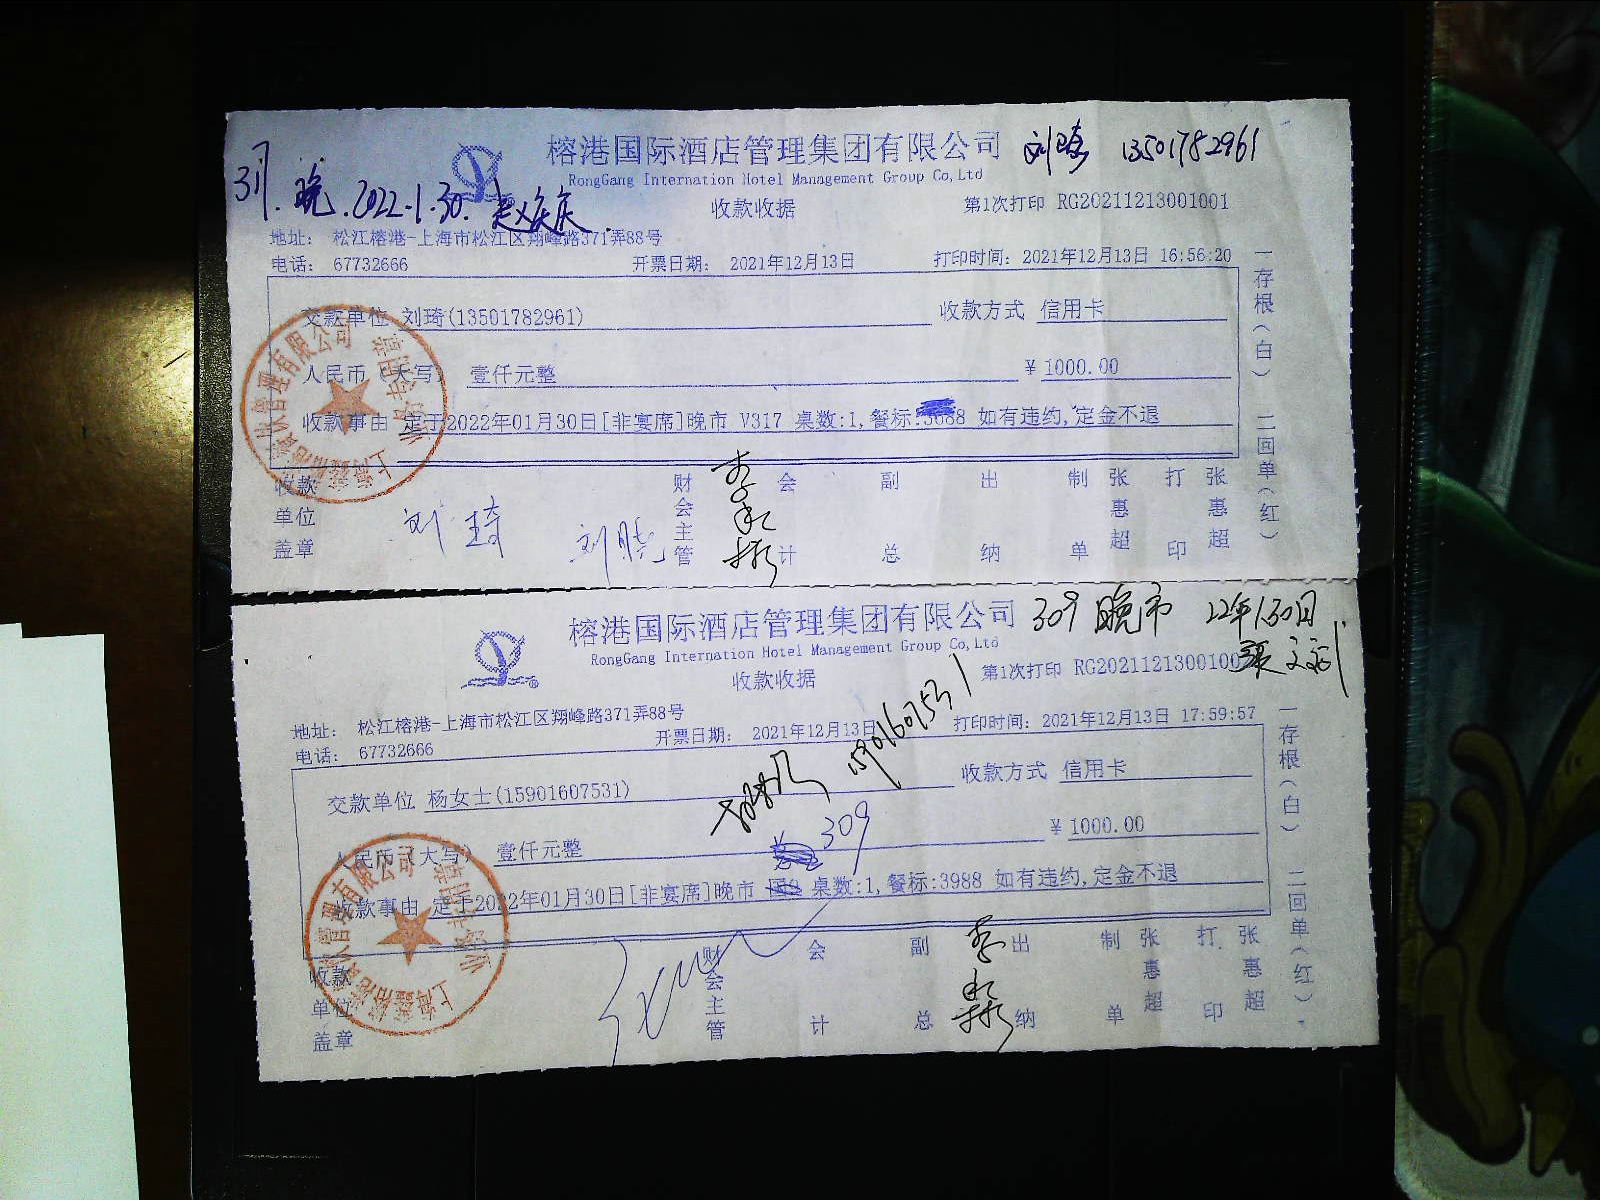 榕港国际酒店管理集团有限公司 刘琦 13501782961
RongGang Internation Hotel Management Group Co,Ltd
317.晚.2022.1.30.
收款收据 第1次打印 RG20211213001001
地址: 松江榕港-上海市松江区翔峰路371弄88号
电话: 67732666 开票日期: 2021年12月13日 打印时间: 2021年12月13日 16:56:20
交款单位 刘琦(13501782961) 收款方式 信用卡
人民币(大写) 壹仟元整 ¥1000.00
收款事由 定于2022年01月30日[非宴席]晚市 V317 桌数:1,餐标:3688 如有违约,定金不退
收款单位盖章 财会主管 会计 副总 出纳 制单 张惠超 打印 张惠超
刘琦 刘晓
一存根(白) 二回单(红)
榕港国际酒店管理集团有限公司 309 晚市 22年1.30日
RongGang Internation Hotel Management Group Co,Ltd
收款收据 第1次打印 RG2021121300100
地址: 松江榕港-上海市松江区翔峰路371弄88号
电话: 67732666 开票日期: 2021年12月13日 打印时间: 2021年12月13日 17:59:57
15901607531
交款单位 杨女士(15901607531) 收款方式 信用卡
309
人民币(大写) 壹仟元整 ¥1000.00
收款事由 定于2022年01月30日[非宴席]晚市 桌数:1,餐标:3988 如有违约,定金不退
收款单位盖章 财会主管 会计 副总 出纳 制单 张惠超 打印 张惠超
一存根(白) 二回单(红)